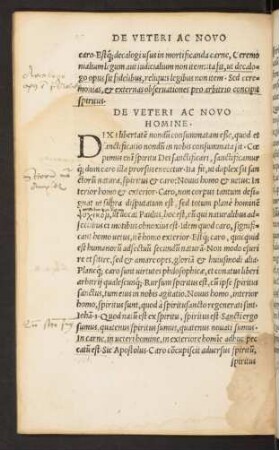 DE VETERI AC NOVO
caro. Estq́; decalogi usus in mortificanda carne, Ceremo
nialium legum aut iudicialium non item: ita fit, ut decalo
go opus sit fidelibus, reliquis legibus non item. Sed cere-
monias, & externas obseruationes pro arbitrio
spiritus.
DE VETERI AC NOVO
HOMINE.
DIXI libertatē nondū consummatam esse, quod et
sanctificatio nondū in nobis consummata sit. Cœ
pimus em̄ spiritu Dei sanctificari, sanctificamur
q́; dum caro illa prorsus enecetur. Ita fit, ut duplex sit san
ctorū natura, spiritus & caro: Nouus homo & uetus: In
terior homo & exterior. Caro, non corpus tantum desi
gnat ut supra disputatum est, sed totum planè hominē
ψυχικόν, ut uocat Paulus, hoc est, eū qui naturalibus ad
fectibus et motibus subiectus est. Idem quod caro, signifi
cant homo uetus, nē homo exterior. Estq́; caro, quo quod
est humanorū adfectuū secundū naturā. Non modo esu
rire et sitire, sed & amare opes, gloriā & huiusmodi alia
Planeq́; caro sunt uirtutes philosophicæ, et conatus liberi
arbitrij qualescunq́;. Rursum spiritus est, cū ipse spiritus
sanctus, tum eius in nobis agitatio. Nouus homo, interior
homo, spiritus sunt, quod à spiritu sancto regenerati sint
Quod natū est ex spiritu, spiritus est. Sancti ergo
sumus, quatenus spiritus sumus, quatenus nouati sumus.
In carne, in ueteri homine, in exteriore homine adhuc pec
catū est. Sic Apostolus. Caro cōcupiscit aduersus spiritū,
spiritus